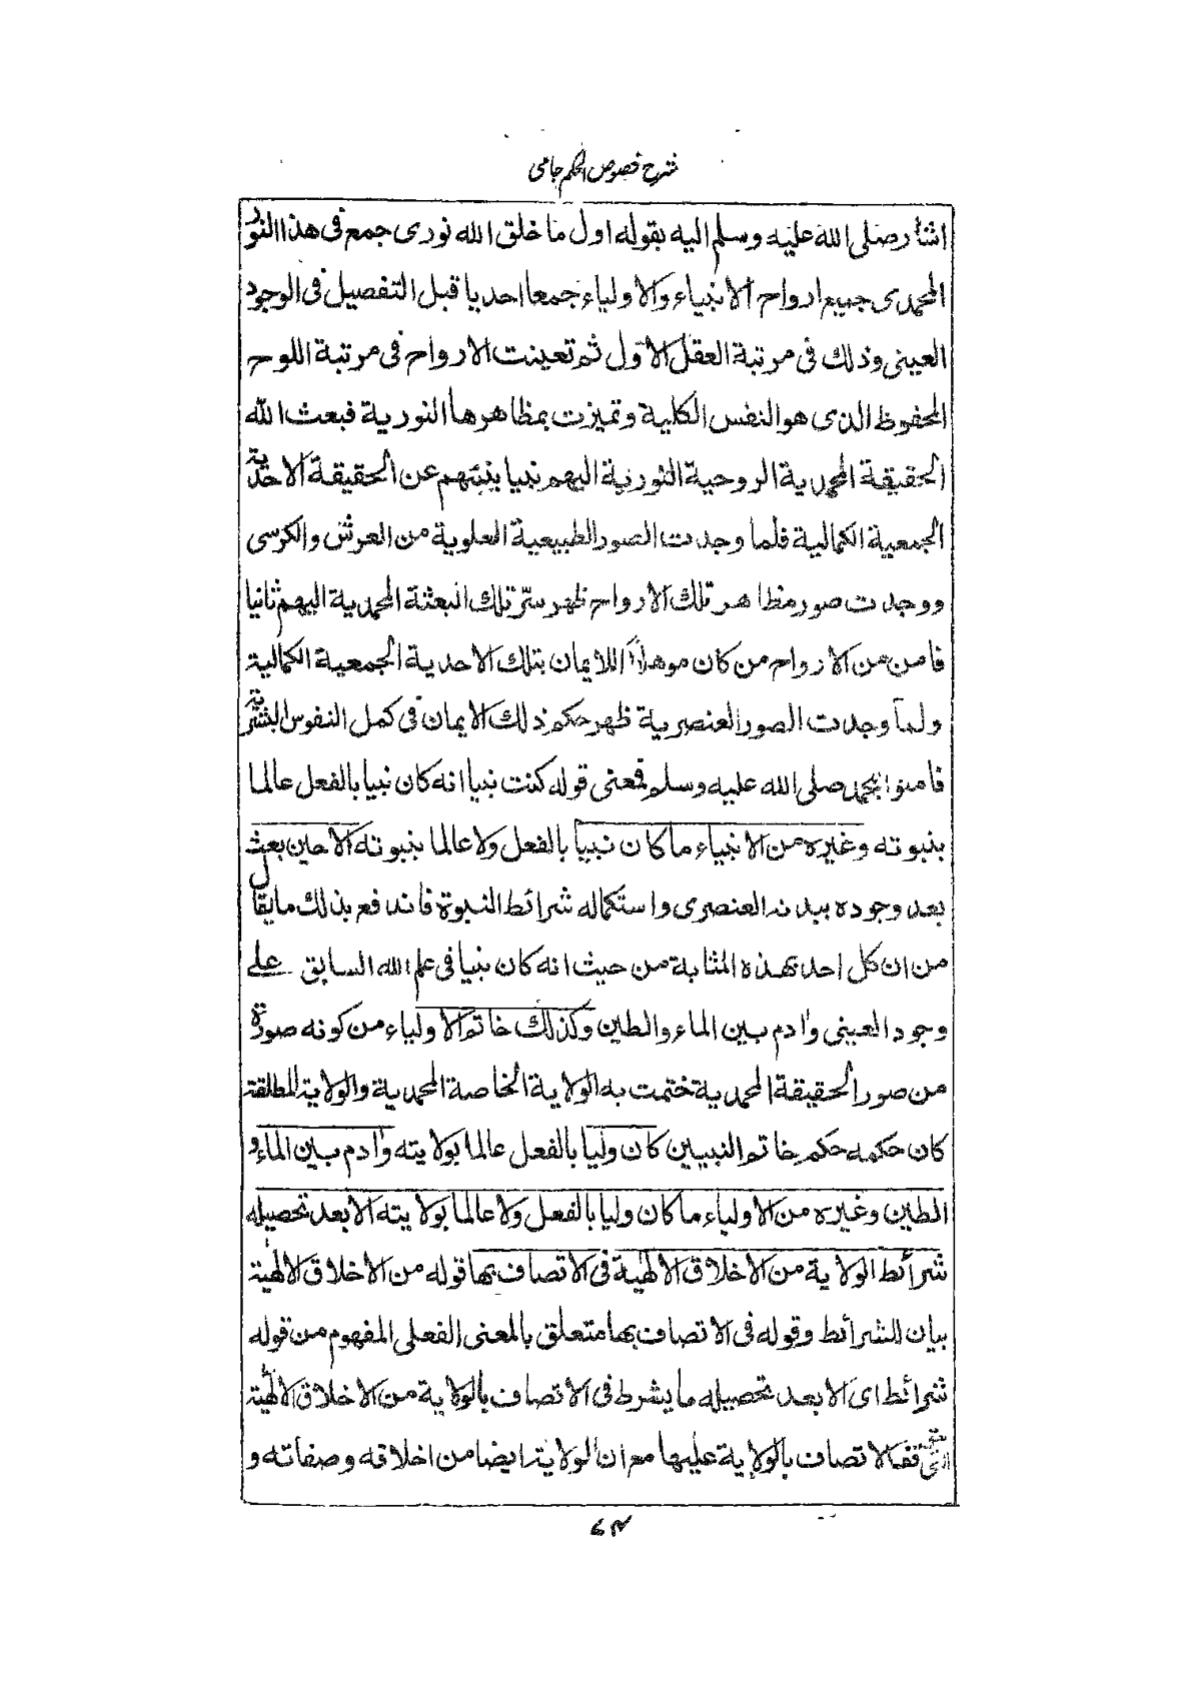 شرح فصوص الحكم جامى
اشار صلى الله عليه وسلم اليه بقوله اول ما خلق الله نورى جمع فى هذا النور
المحمدى جميع ارواح الانبياء والاولياء جمعا احديا قبل التفصيل فى الوجود
العينى وذلك فى مرتبة العقل الاول ثم تعينت الارواح فى مرتبة اللوح
المحفوظ الذى هو النفس الكلية وتميزت بمظاهرها النورية فبعث الله
الحقيقة المحمدية الروحية النورية اليهم نبيا ينبئهم عن الحقيقة الاحدية
الجمعية الكمالية فلما وجدت الصور الطبيعية العلوية من العرش والكرسى
ووجدت صور مظاهر تلك الارواح ظهر سرّ تلك البعثة المحمدية اليهم ثانيا
فامن من الارواح من كان موهلاً للايمان بتلك الاحدية الجمعية الكمالية
ولما وجدت الصور العنصرية ظهر حكم ذلك الايمان فى كمل النفوس البشرية
فامنوا بمحمد صلى الله عليه وسلم فمعنى قوله كنت نبيا انه كان نبيا بالفعل عالما
بنبوته وغيره من الانبياء ما كان نبيا بالفعل ولا عالما بنبوته الا حين بعث
بعد وجوده ببدنه العنصرى واستكماله شرائط النبوة فاندفع بذلك ما يقال
من ان كل احد بهذه المثابة من حيث انه كان نبيا فى علم الله السابق على
وجود العينى وادم بين الماء والطين وكذلك خاتم الاولياء من كونه صورة
من صور الحقيقة المحمدية ختمت به الولاية الخاصة المحمدية والولاية المطلقة
كان حكمه حكم خاتم النبيين كان وليا بالفعل عالما بولايته وادم بين الماء و
الطين وغيره من الاولياء ما كان وليا بالفعل ولا عالما بولايته الا بعد تحصيله
شرائط الولاية من الاخلاق الالهية فى الاتصاف بها قوله من الاخلاق الالهية
بيان للشرائط وقوله فى الاتصاف بها متعلق بالمعنى الفعلى المفهوم من قوله
شرائط اى الا بعد تحصيله ما يشرط فى الاتصاف بالولاية من الاخلاق الالهية
الاتصاف بالولاية عليها مع ان الولاية ايضا من اخلاقه وصفاته و